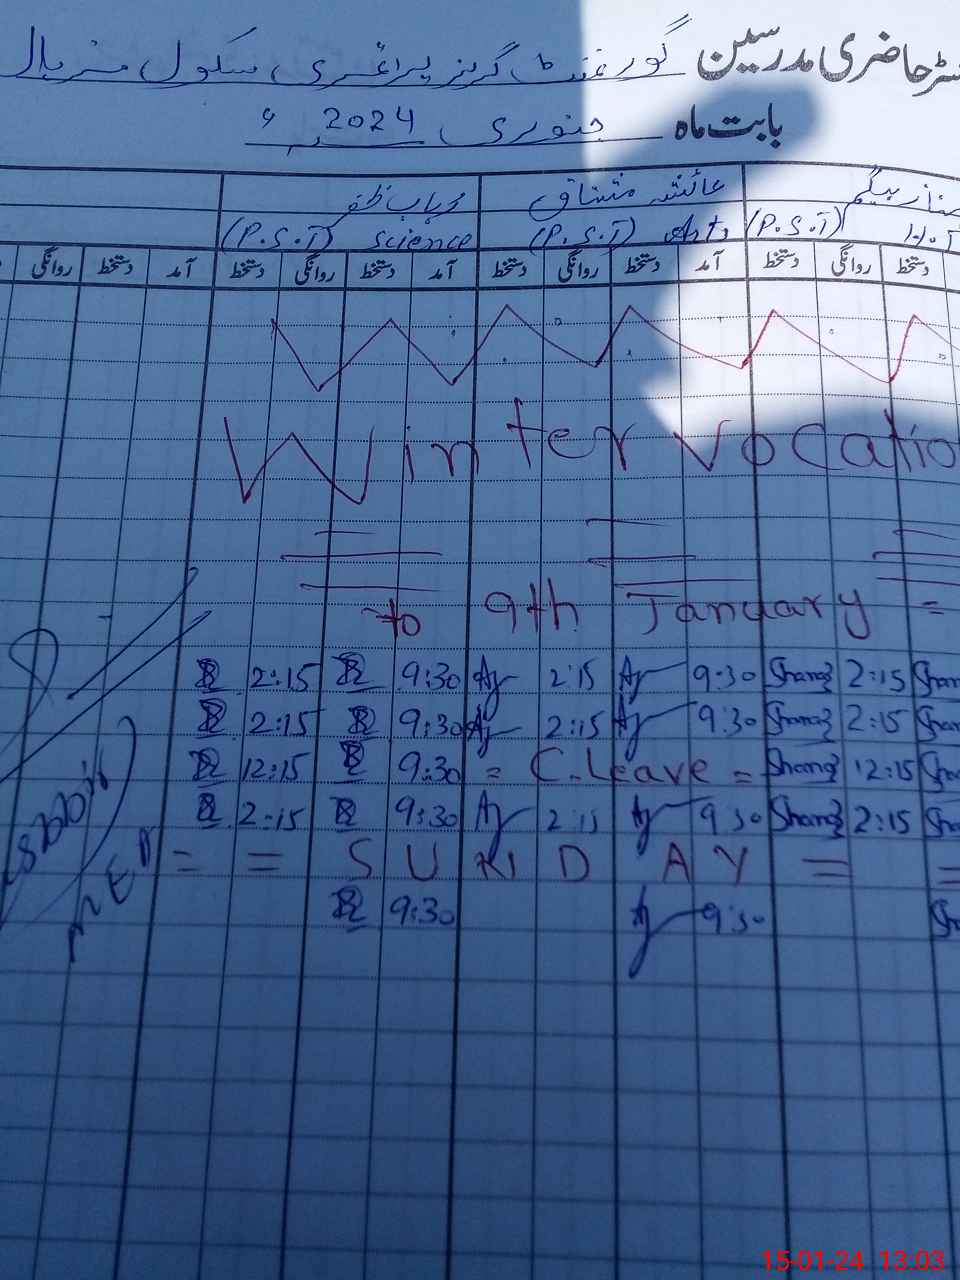 حاضری مدرسین گورنمنٹ گرلز پرائمری سکول
بابت ماہ جنوری 2024ء
بیگم عائشہ مشتاق رباب ظفر
(P.S.T) Arts (P.S.T) Science (P.S.T)
دستخط روانگی دستخط آمد دستخط روانگی دستخط آمد دستخط روانگی دستخط آمد دستخط روانگی
Winter Vocatio
to 9th January =
2:15 9:30 Ay 2:15 Ay 9:30 Shanaz 2:15
2:15 9:30 Ay 2:15 Ay 9:30 Shanaz 2:15
12:15 9:30 = C.Leave = Shanaz 12:15
2:15 9:30 Ay 2:15 Ay 9:30 Shanaz 2:15
= = SUNDAY = =
9:30 Ay 9:30
15-01-24 13:03